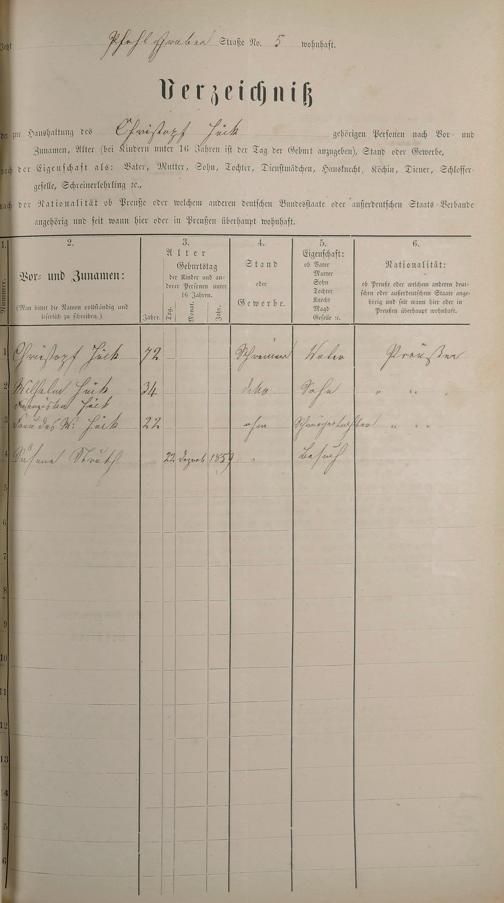 Jetzt Pfahlgraben Straße No. 5 wohnhaft.
Verzeichniß
der zur Haushaltung des Christopf Hück gehörigen Personen nach Vor- und
Zunamen, Alter (bei Kindern unter 16 Jahren ist der Tag der Geburt anzugeben), Stand oder Gewerbe,
nach der Eigenschaft als: Vater, Mutter, Sohn, Tochter, Dienstmädchen, Hausknecht, Köchin, Diener, Schlosser-
geselle, Schreinerlehrling ꝛc.,
nach der Nationalität ob Preuße oder welchem anderen deutschen Bundesstaate oder außerdeutschen Staats-Verbande
angehörig und seit wann hier oder in Preußen überhaupt wohnhaft.
1. 2. 3. 4. 5. 6.
Nummer.
Vor- und Zunamen:
(Man bittet die Namen vollständig und
leserlich zu schreiben.)
Alter
Geburtstag
der Kinder und an-
derer Personen unter
16 Jahren.
Jahre. Tag. Monat. Jahr.
Stand
oder
Gewerbe.
Eigenschaft:
ob Vater
Mutter
Sohn
Tochter
Knecht
Magd
Geselle ꝛc.
Nationalität:
ob Preuße oder welchem anderen deut-
schen oder außerdeutschen Staate ange-
hörig und seit wann hier oder in
Preußen überhaupt wohnhaft.
1 Christopf Hück 72 Schreiner Vater Preusse
2 Wilhelm Hück 34 dito Sohn " " "
Hück
3 Frau des W: Hück 22 ohn Schwiegertochter " " "
4 22 1859 " Besuch
5
6
7
8
9
10
11
12
13
14
15
16